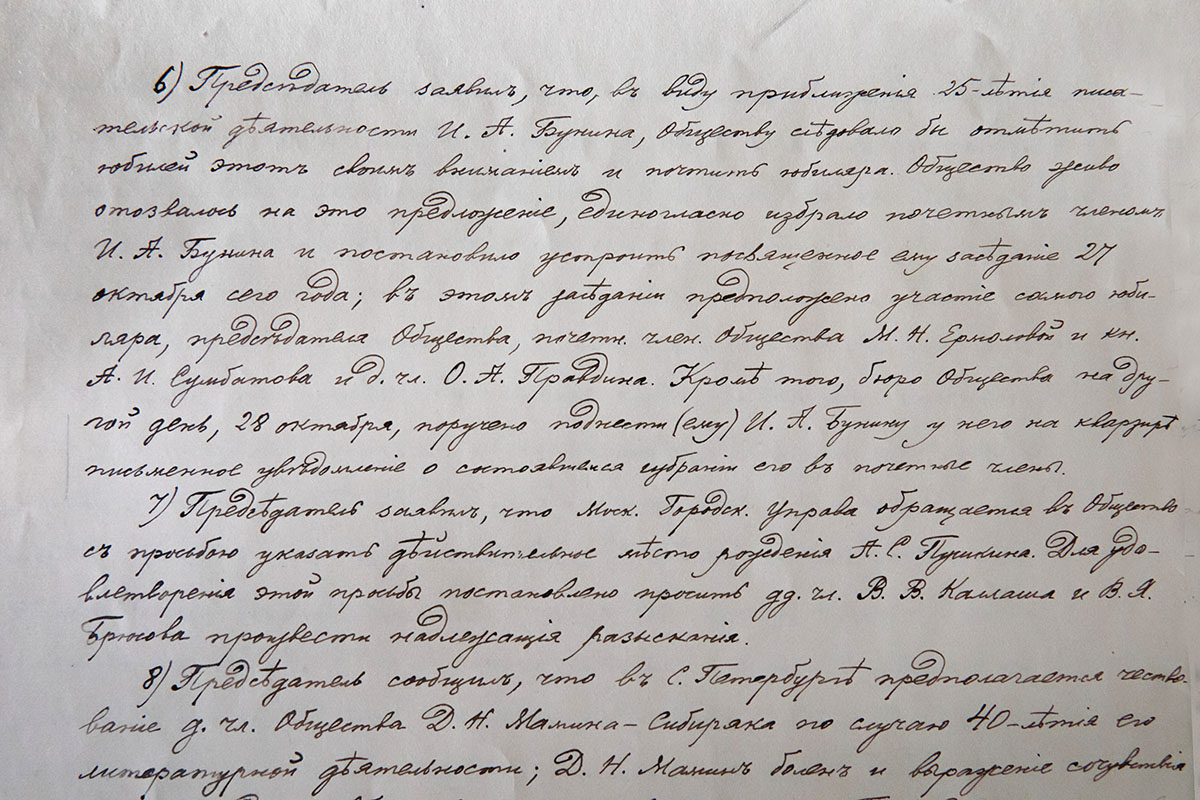 6) Предсѣдатель заявилъ, что, въ виду приближенія 25-лѣтія писа-
тельской дѣятельности И. А. Бунина, Обществу слѣдовало бы отмѣтить
юбилей этотъ своимъ вниманіемъ и почтить юбиляра. Общество живо
отозвалось на это предложеніе, единогласно избрало почетнымъ членомъ
И. А. Бунина и постановило устроить посвященное ему засѣданіе 27
октября сего года; въ этомъ засѣданіи предположено участіе самого юби-
ляра, предсѣдателя Общества, почетн. член. Общества М. Н. Ермоловой и кн.
А. И. Сумбатова и д. чл. О. А. Правдина. Кромѣ того, бюро Общества на дру-
гой день, 28 октября, поручено поднести (ему) И. А. Бунину у него на квартирѣ
письменное увѣдомленіе о состоявшемся избраніи его въ почетные члены.
7) Предсѣдатель заявилъ, что Моск. Городск. Управа обращается въ Общество
съ просьбою указать дѣйствительное мѣсто рожденія А. С. Пушкина. Для удо-
влетворенія этой просьбы постановлено просить дд. чл. В. В. Каллаша и В. Я.
Брюсова произвести надлежащія разысканія.
8) Предсѣдатель сообщилъ, что въ С. Петербургѣ предполагается чество-
ваніе д. чл. Общества Д. Н. Мамина-Сибиряка по случаю 40-лѣтія его
литературной дѣятельности; Д. Н. Маминъ боленъ и выраженіе сочувствія